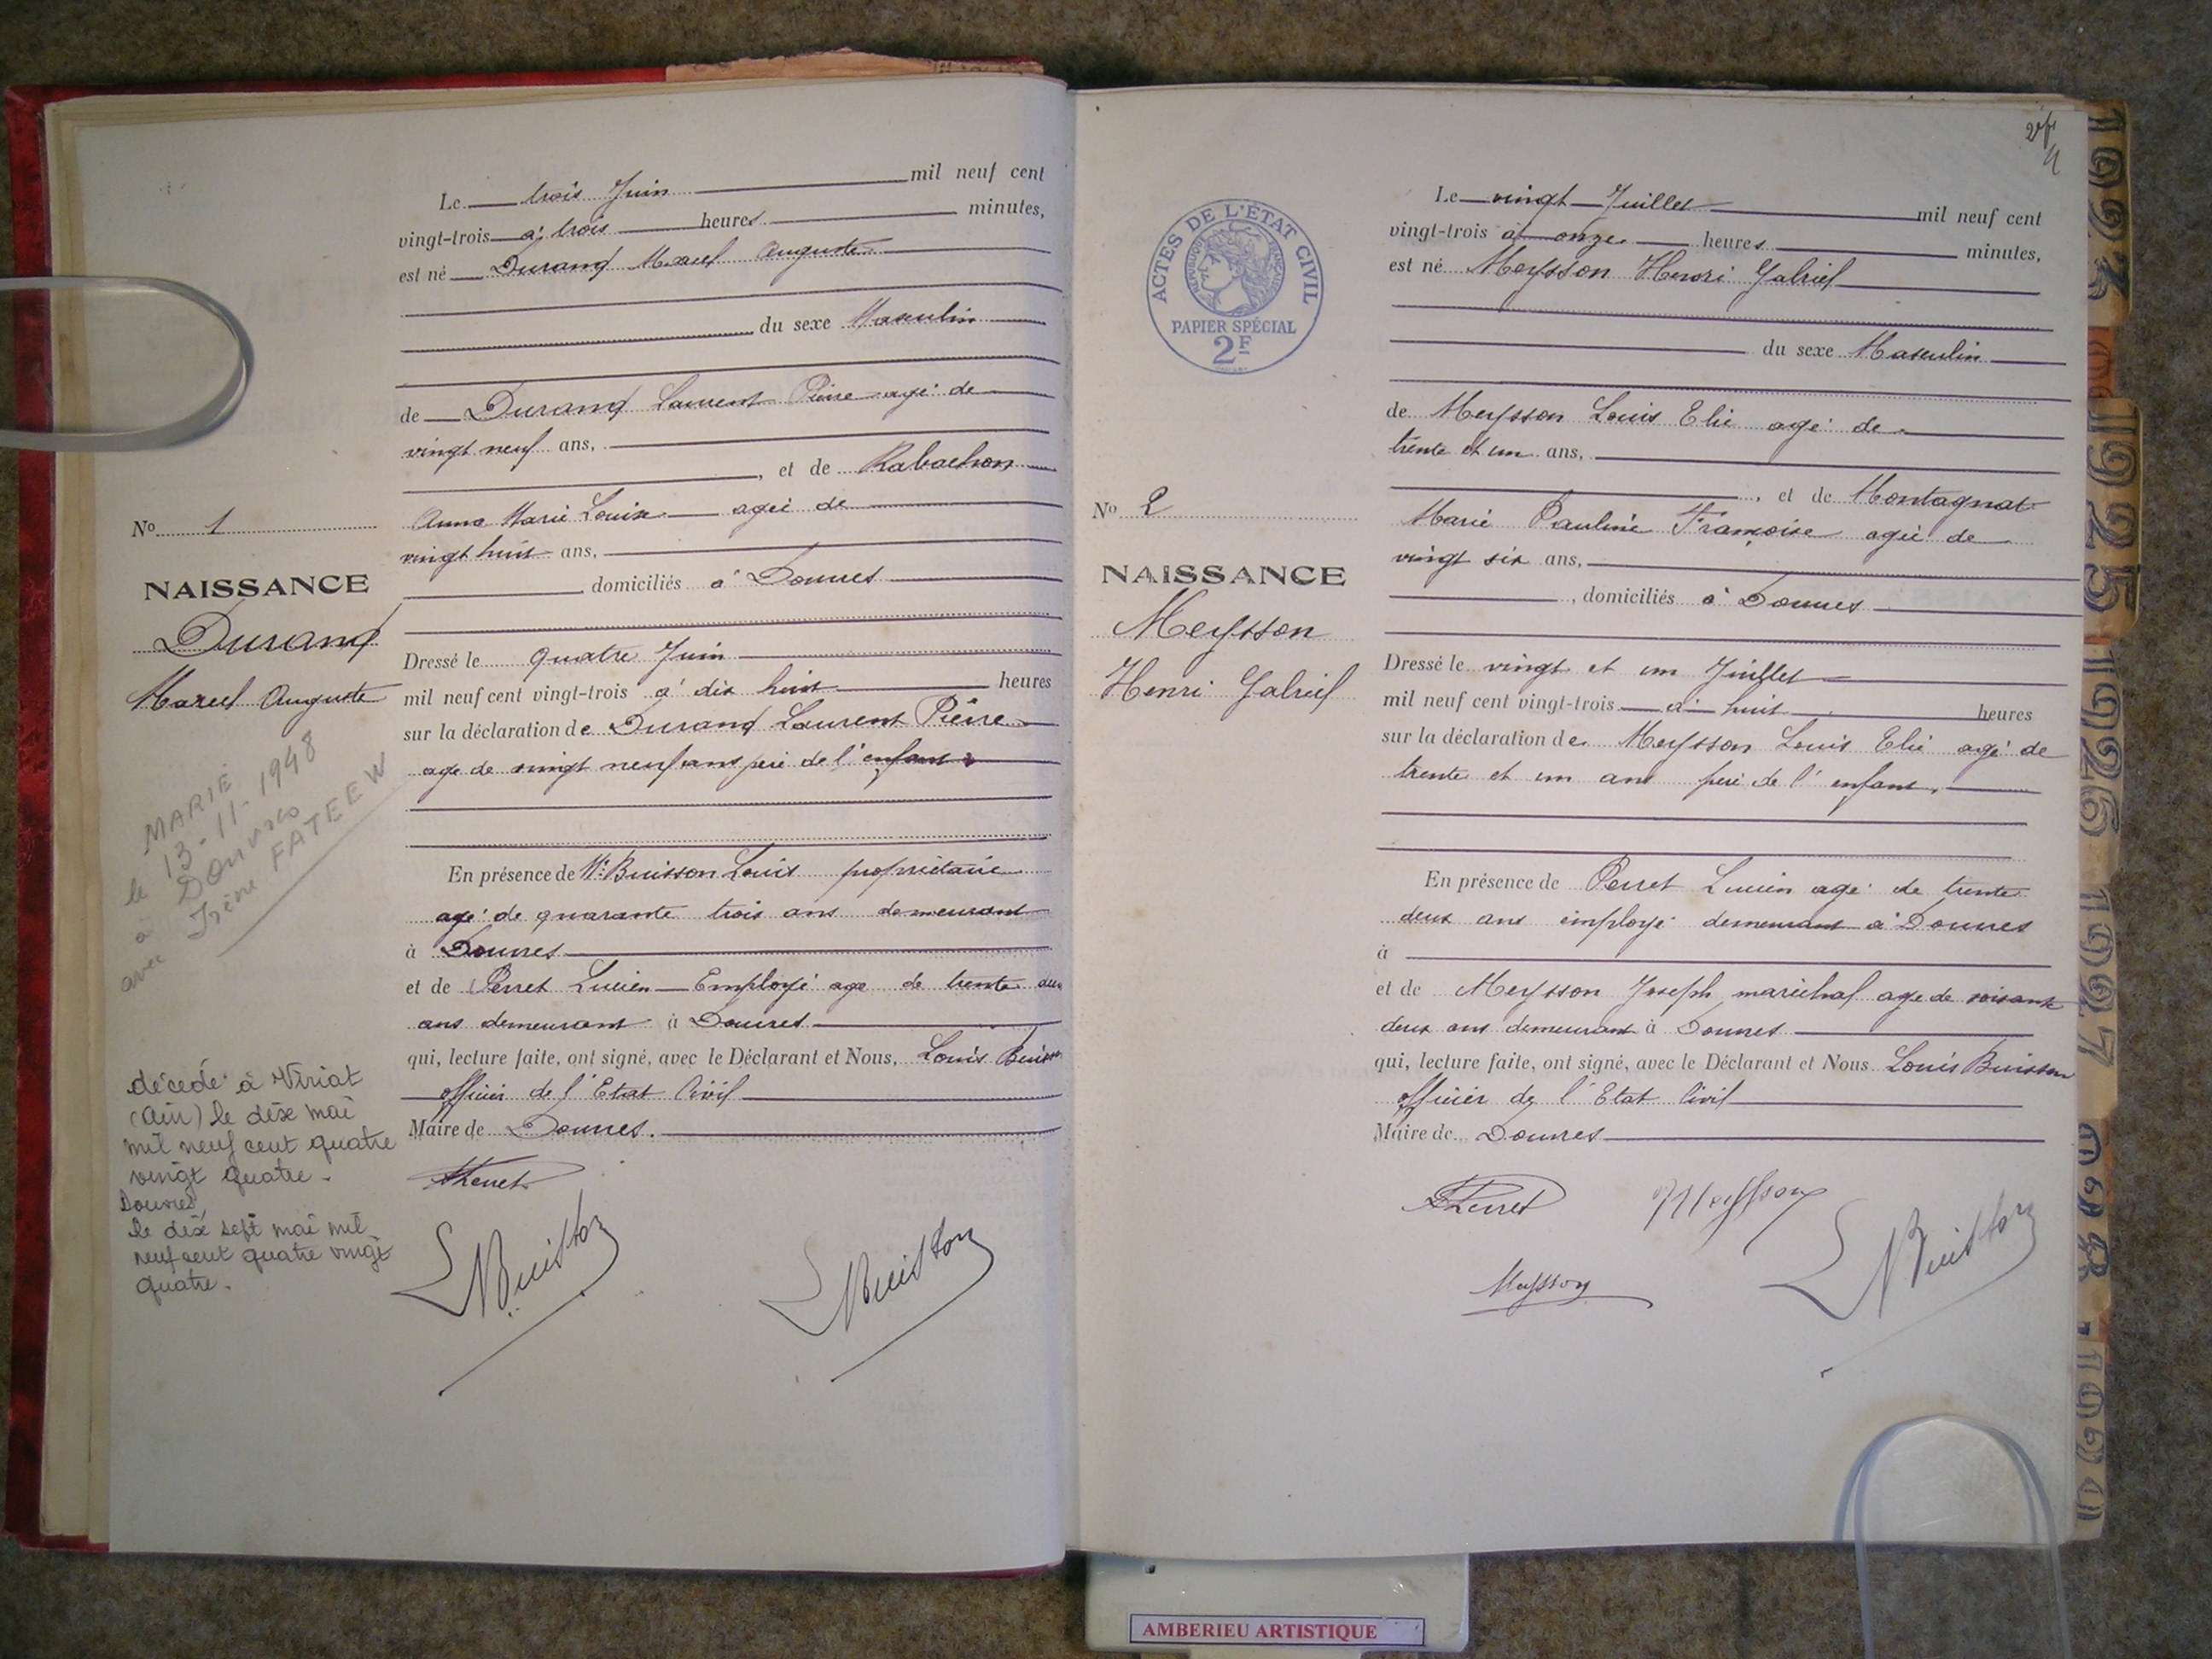 Le trois Juin mil neuf cent
vingt-trois à trois heures minutes,
est né Durand Marcel Auguste
du sexe Masculin
de Durand Laurent Pierre agé de
vingt neuf ans,
, et de Rabachon
Anna Marie Louise agée de
vingt huit ans,
domiciliés à Douvres
Dressé le quatre Juin
mil neuf cent vingt-trois à dix huit heures
sur la déclaration de Durand Laurent Pierre
age de vingt neuf ans père de l'enfant
En présence de Mr Buisson Louis propriétaire
agé de quarante trois ans demeurant
à Douvres
et de Perret Lucien Employé age de trente deux
ans demeurant à Douvres
qui, lecture faite, ont signé, avec le Déclarant et Nous, Louis Buisson
officier de l'Etat Civil
Maire de Douvres.
Perret
L Buisson
L Buisson
No 1
NAISSANCE
Durand
Marcel Auguste
MARIÉ
le 13-11-1948
à Douvres
avec Irène FATEEW
décédé à Viriat
(Ain) le dix mai
mil neuf cent quatre
vingt quatre.
Douvres,
le dix sept mai mil
neuf cent quatre vingt
quatre.
ACTES DE L'ÉTAT CIVIL
RÉPUBLIQUE FRANÇAISE
PAPIER SPÉCIAL
2F
No 2
NAISSANCE
Meysson
Henri Gabriel
Le vingt Juillet mil neuf cent
vingt-trois à onze heures minutes,
est né Meysson Henri Gabriel
du sexe Masculin
de Meysson Louis Elie agé de
trente et un ans,
, et de Montagnat
Marie Pauline Françoise agée de
vingt six ans,
, domiciliés à Douvres
Dressé le vingt et un Juillet
mil neuf cent vingt-trois à huit heures
sur la déclaration de Meysson Louis Elie agé de
trente et un ans père de l'enfant.
En présence de Perret Lucien agé de trente
deux ans employé demeurant à Douvres
à
et de Meysson Joseph maréchal age de soisante
deux ans demeurant à Douvres
qui, lecture faite, ont signé, avec le Déclarant et Nous Louis Buisson
officier de l'Etat Civil
Maire de Douvres
Perret
Meysson
Meysson
L Buisson
1925
1926
1927
AMBERIEU ARTISTIQUE